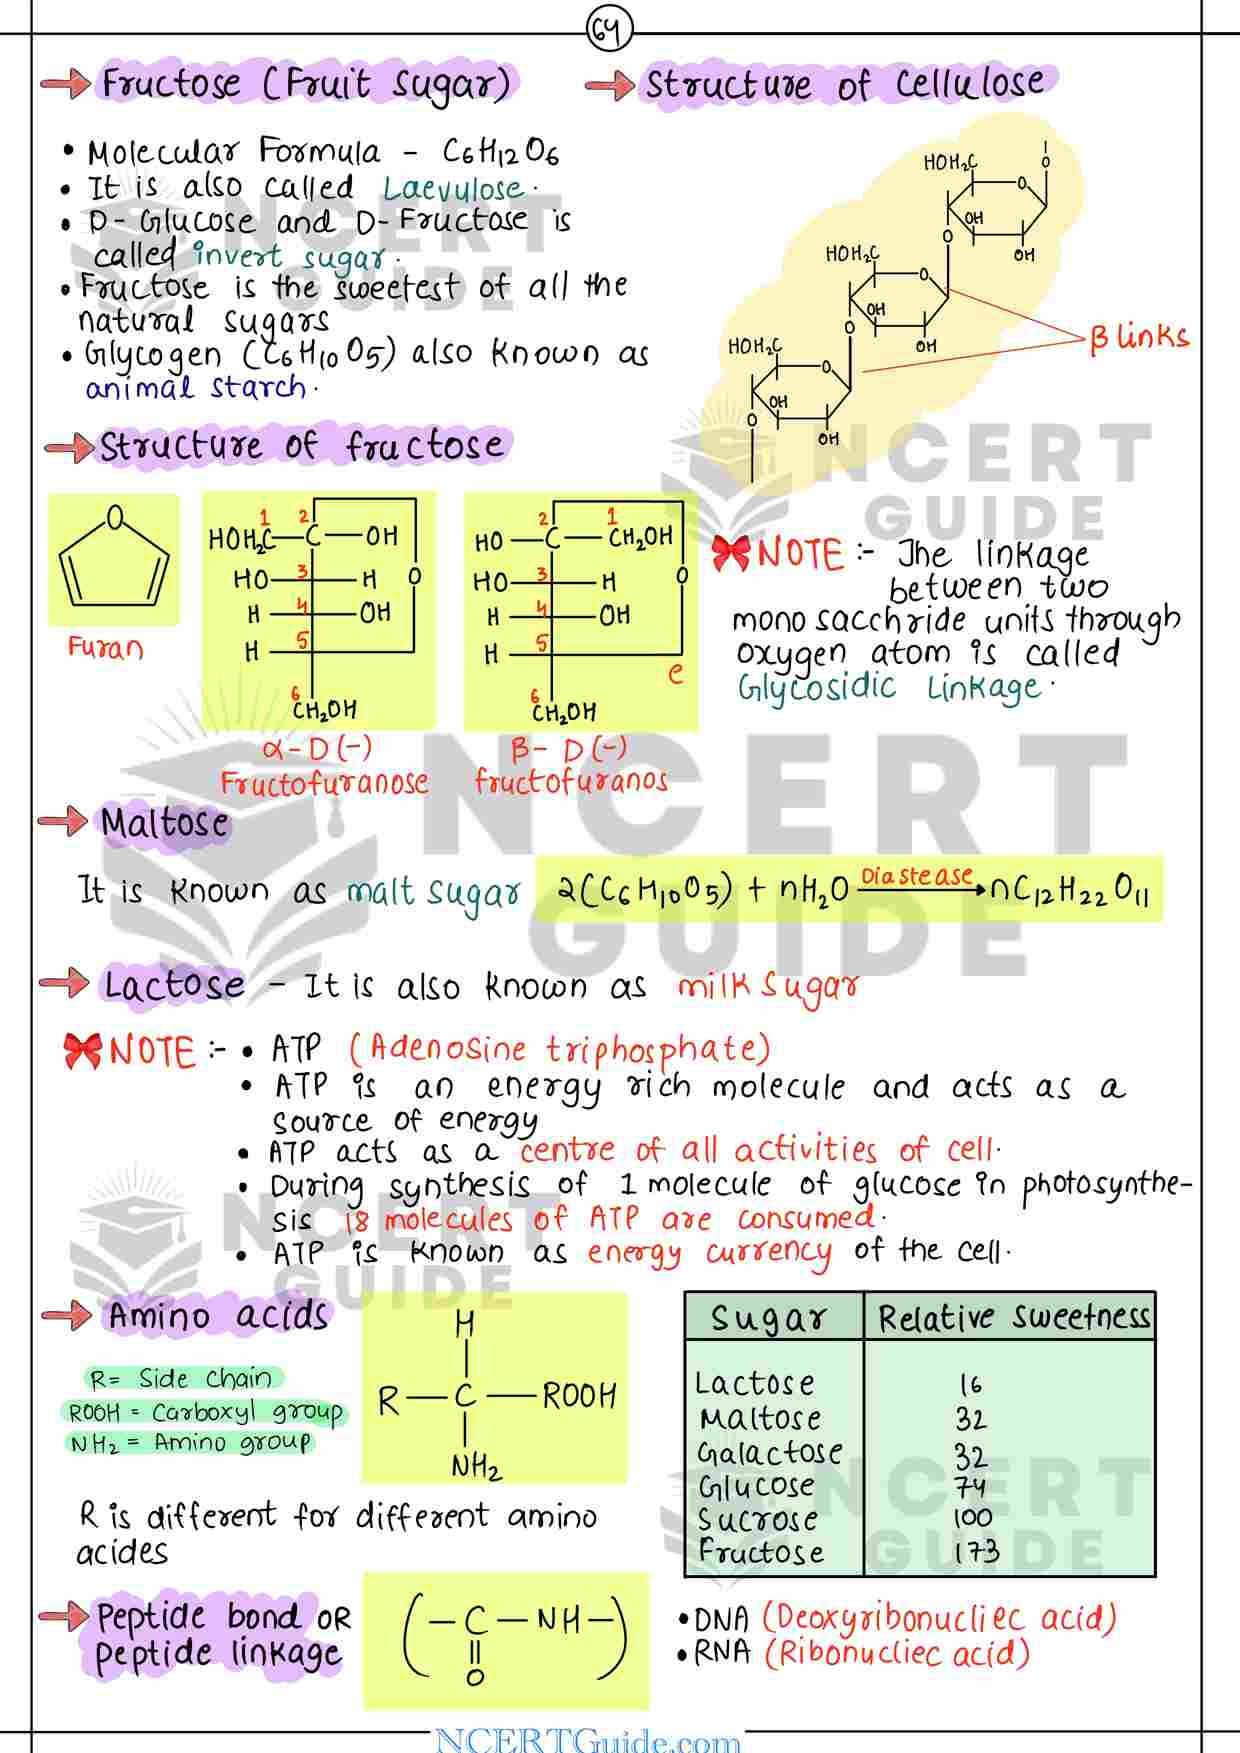 64
Fructose (Fruit sugar)
• Molecular Formula - C6H12O6
• It is also called Laevulose.
• D- Glucose and D-Fructose is
called invert sugar.
• Fructose is the sweetest of all the
natural sugars
• Glycogen (C6H10O5) also known as
animal starch.
Structure of Cellulose
HOH2C
O
O
OH
OH
O
HOH2C
O
OH
OH
O
HOH2C
O
OH
OH
O
β links
Structure of fructose
O
Furan
1 2
HOH2C—C—OH
HO 3 H O
H 4 OH
H 5
6
CH2OH
α-D(-)
Fructofuranose
2 1
HO—C—CH2OH
HO 3 H O
H 4 OH
H 5
e
6
CH2OH
β- D(-)
fructofuranos
NOTE :- The linkage
between two
mono sacchride units through
oxygen atom is called
Glycosidic Linkage.
Maltose
It is known as malt sugar 2(C6H10O5) + nH2O Diastease → nC12H22O11
Lactose - It is also known as milk sugar
NOTE :- • ATP (Adenosine triphosphate)
• ATP is an energy rich molecule and acts as a
source of energy
• ATP acts as a centre of all activities of cell.
• During synthesis of 1 molecule of glucose in photosynthe-
sis 18 molecules of ATP are consumed.
• ATP is known as energy currency of the cell.
Amino acids
R= Side chain
ROOH = Carboxyl group
NH2 = Amino group
H
R—C—ROOH
NH2
R is different for different amino
acides
Sugar Relative Sweetness
Lactose 16
Maltose 32
Galactose 32
Glucose 74
Sucrose 100
Fructose 173
Peptide bond OR
peptide linkage
(—C—NH—)
O
•DNA (Deoxyribonucliec acid)
•RNA (Ribonucliec acid)
NCERT
GUIDE
NCERT
GUIDE
NCERT
GUIDE
NCERT
GUIDE
NCERT
GUIDE
NCERTGuide.com